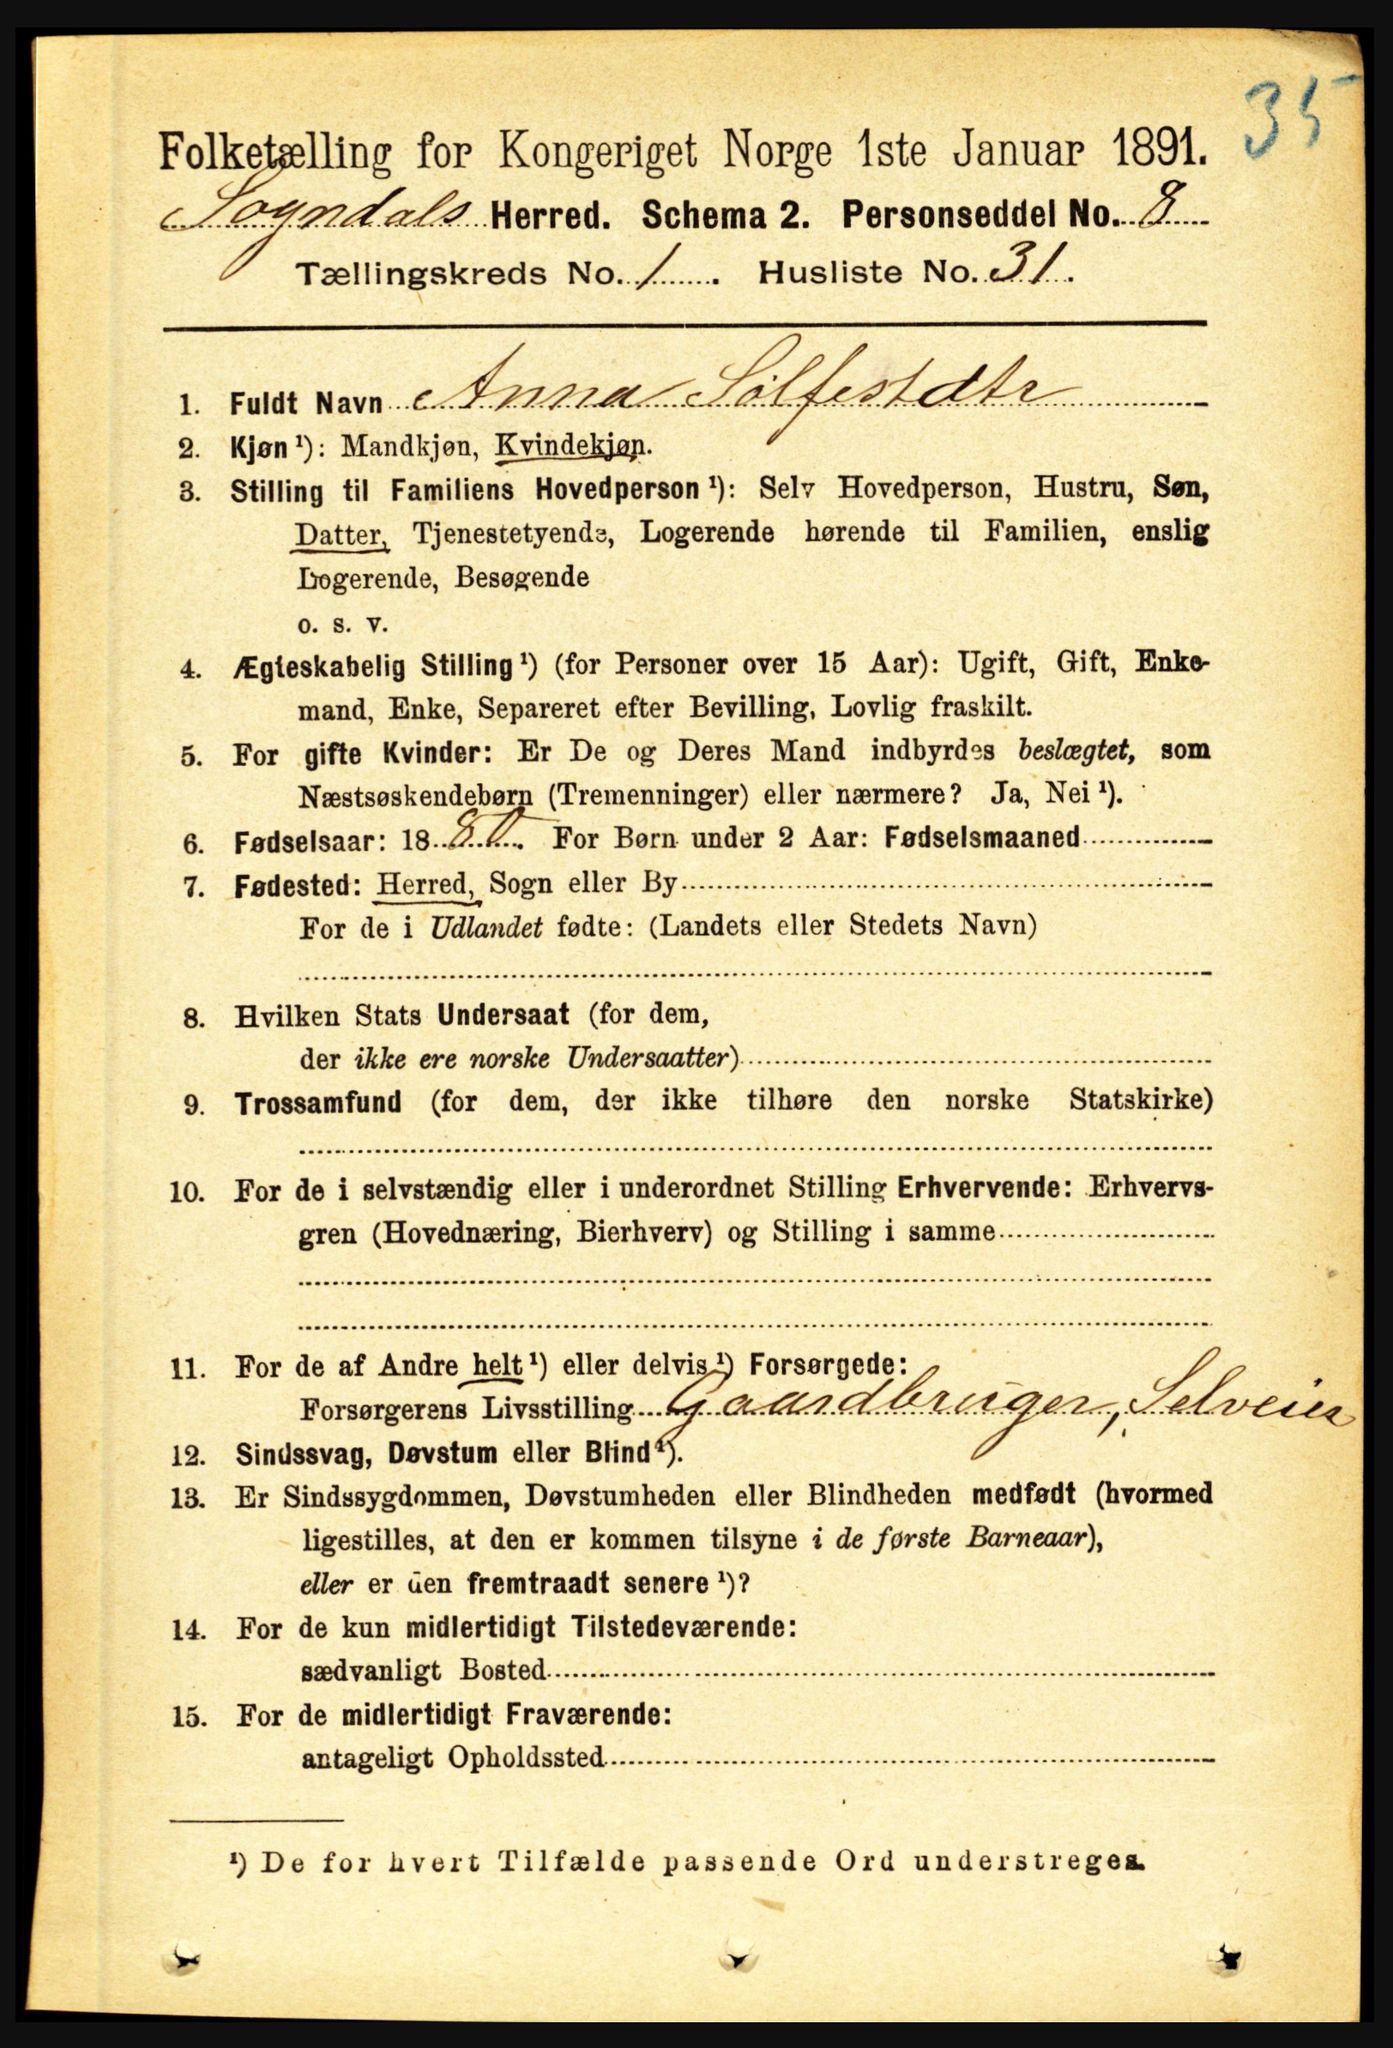 35
Folketælling for Kongeriget Norge 1ste Januar 1891.
Sogndals Herred. Schema 2. Personseddel No. 8
Tællingskreds No. 1. Husliste No. 31.
1. Fuldt Navn Anna Sølfestdtr
2. Kjøn¹): Mandkjøn, Kvindekjøn.
3. Stilling til Familiens Hovedperson¹): Selv Hovedperson, Hustru, Søn,
Datter, Tjenestetyende, Logerende hørende til Familien, enslig
Logerende, Besøgende
o. s. v.
4. Ægteskabelig Stilling¹) (for Personer over 15 Aar): Ugift, Gift, Enke-
mand, Enke, Separeret efter Bevilling, Lovlig fraskilt.
5. For gifte Kvinder: Er De og Deres Mand indbyrdes beslægtet, som
Næstsøskendebørn (Tremenninger) eller nærmere? Ja, Nei¹).
6. Fødselsaar: 1880. For Børn under 2 Aar: Fødselsmaaned
7. Fødested: Herred, Sogn eller By
For de i Udlandet fødte: (Landets eller Stedets Navn)
8. Hvilken Stats Undersaat (for dem,
der ikke ere norske Undersaatter)
9. Trossamfund (for dem, der ikke tilhøre den norske Statskirke)
10. For de i selvstændig eller i underordnet Stilling Erhvervende: Erhvervs-
gren (Hovednæring, Bierhverv) og Stilling i samme
11. For de af Andre helt¹) eller delvis¹) Forsørgede:
Forsørgerens Livsstilling Gaardbruger, Selveier
12. Sindssvag, Døvstum eller Blind¹).
13. Er Sindssygdommen, Døvstumheden eller Blindheden medfødt (hvormed
ligestilles, at den er kommen tilsyne i de første Barneaar),
eller er den fremtraadt senere¹)?
14. For de kun midlertidigt Tilstedeværende:
sædvanligt Bosted
15. For de midlertidigt Fraværende:
antageligt Opholdssted
¹) De for hvert Tilfælde passende Ord understreges.